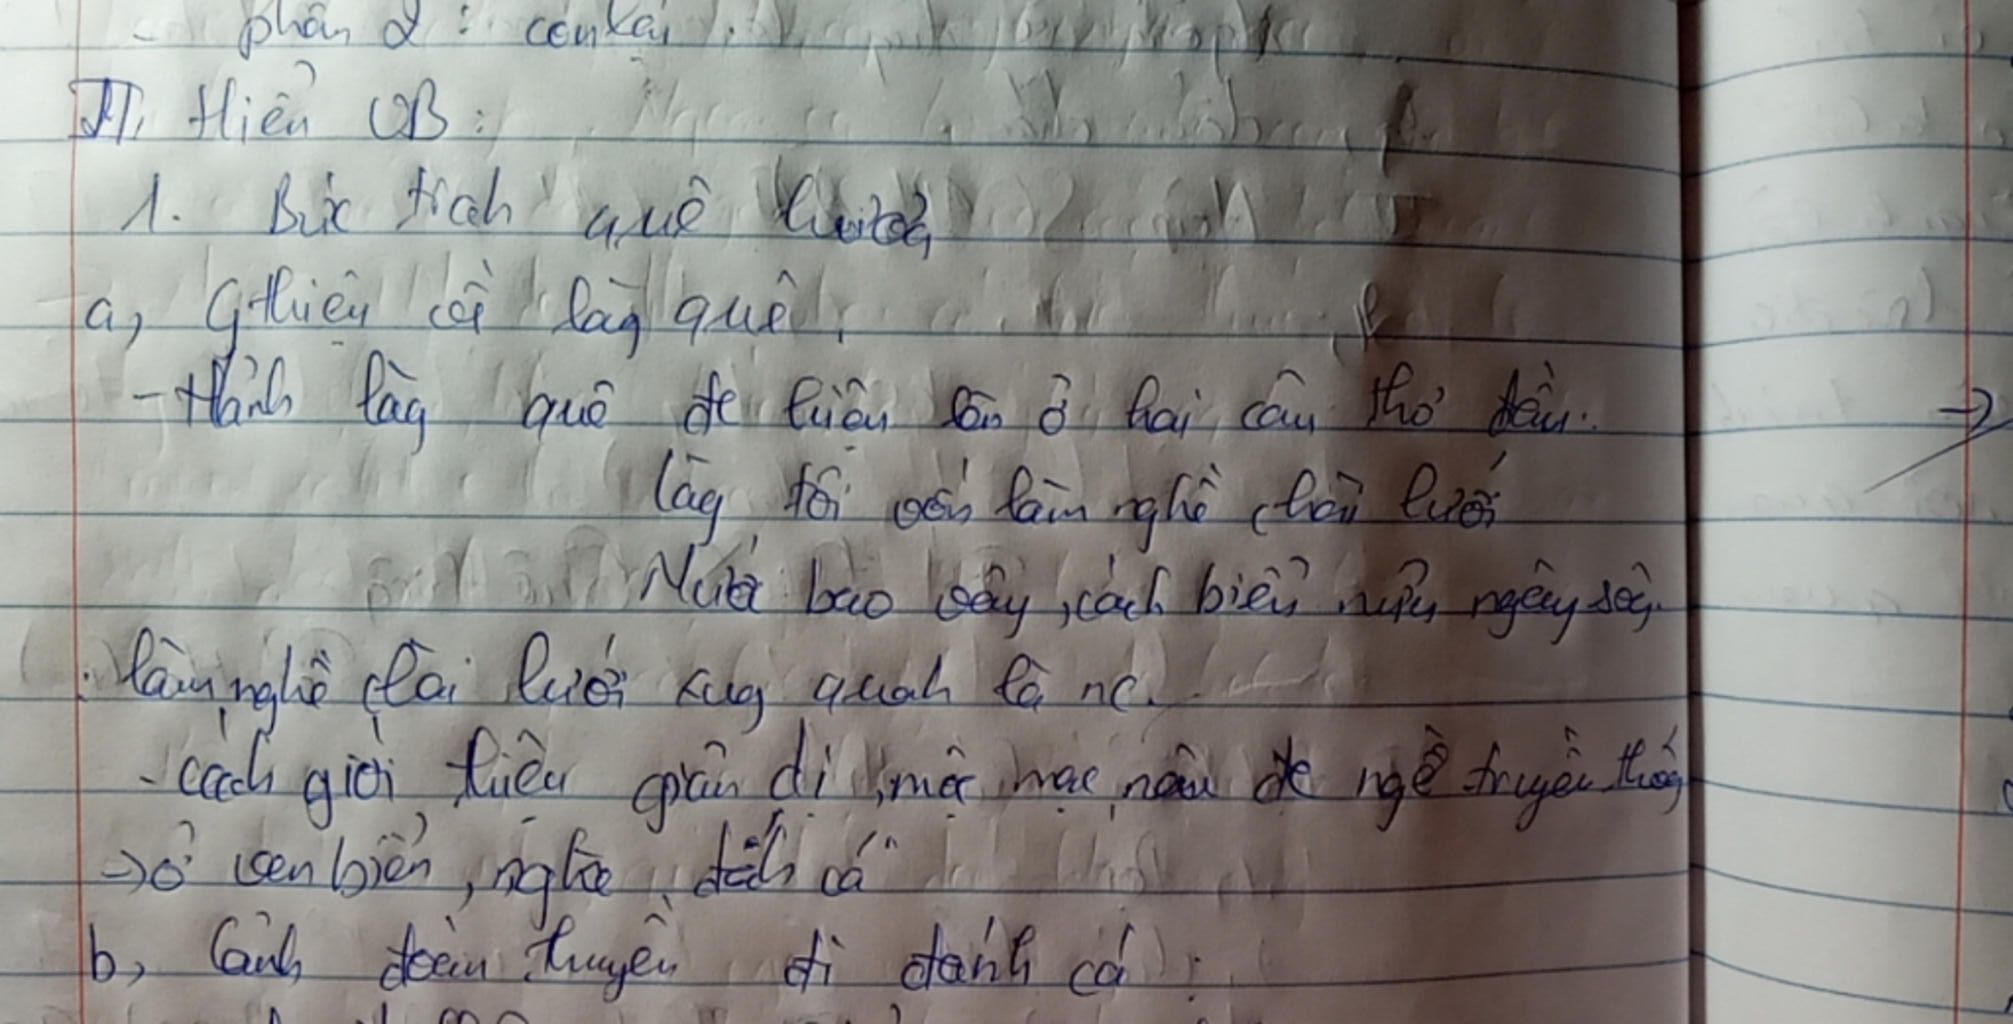 - phần 2: còn lại.
II, Hiểu VB:
1. Bức trah quê hươg
a, Gthiệu về làg quê,
- Hảnh làg quê đc hiện lên ở hai câu thơ đầu.
Làg tôi vốn làm nghề chài lưới
Nước bao vây, cách biển nửa ngày sôg.
: làm nghề chài lưới xug quah là nc.
- cách giới thiệu giản dị, mộc mạc, nêu đc ngề truyền thốg
→ ở ven biển, nghề đáh cá
b, Cảnh đoàn thuyền đi đánh cá: